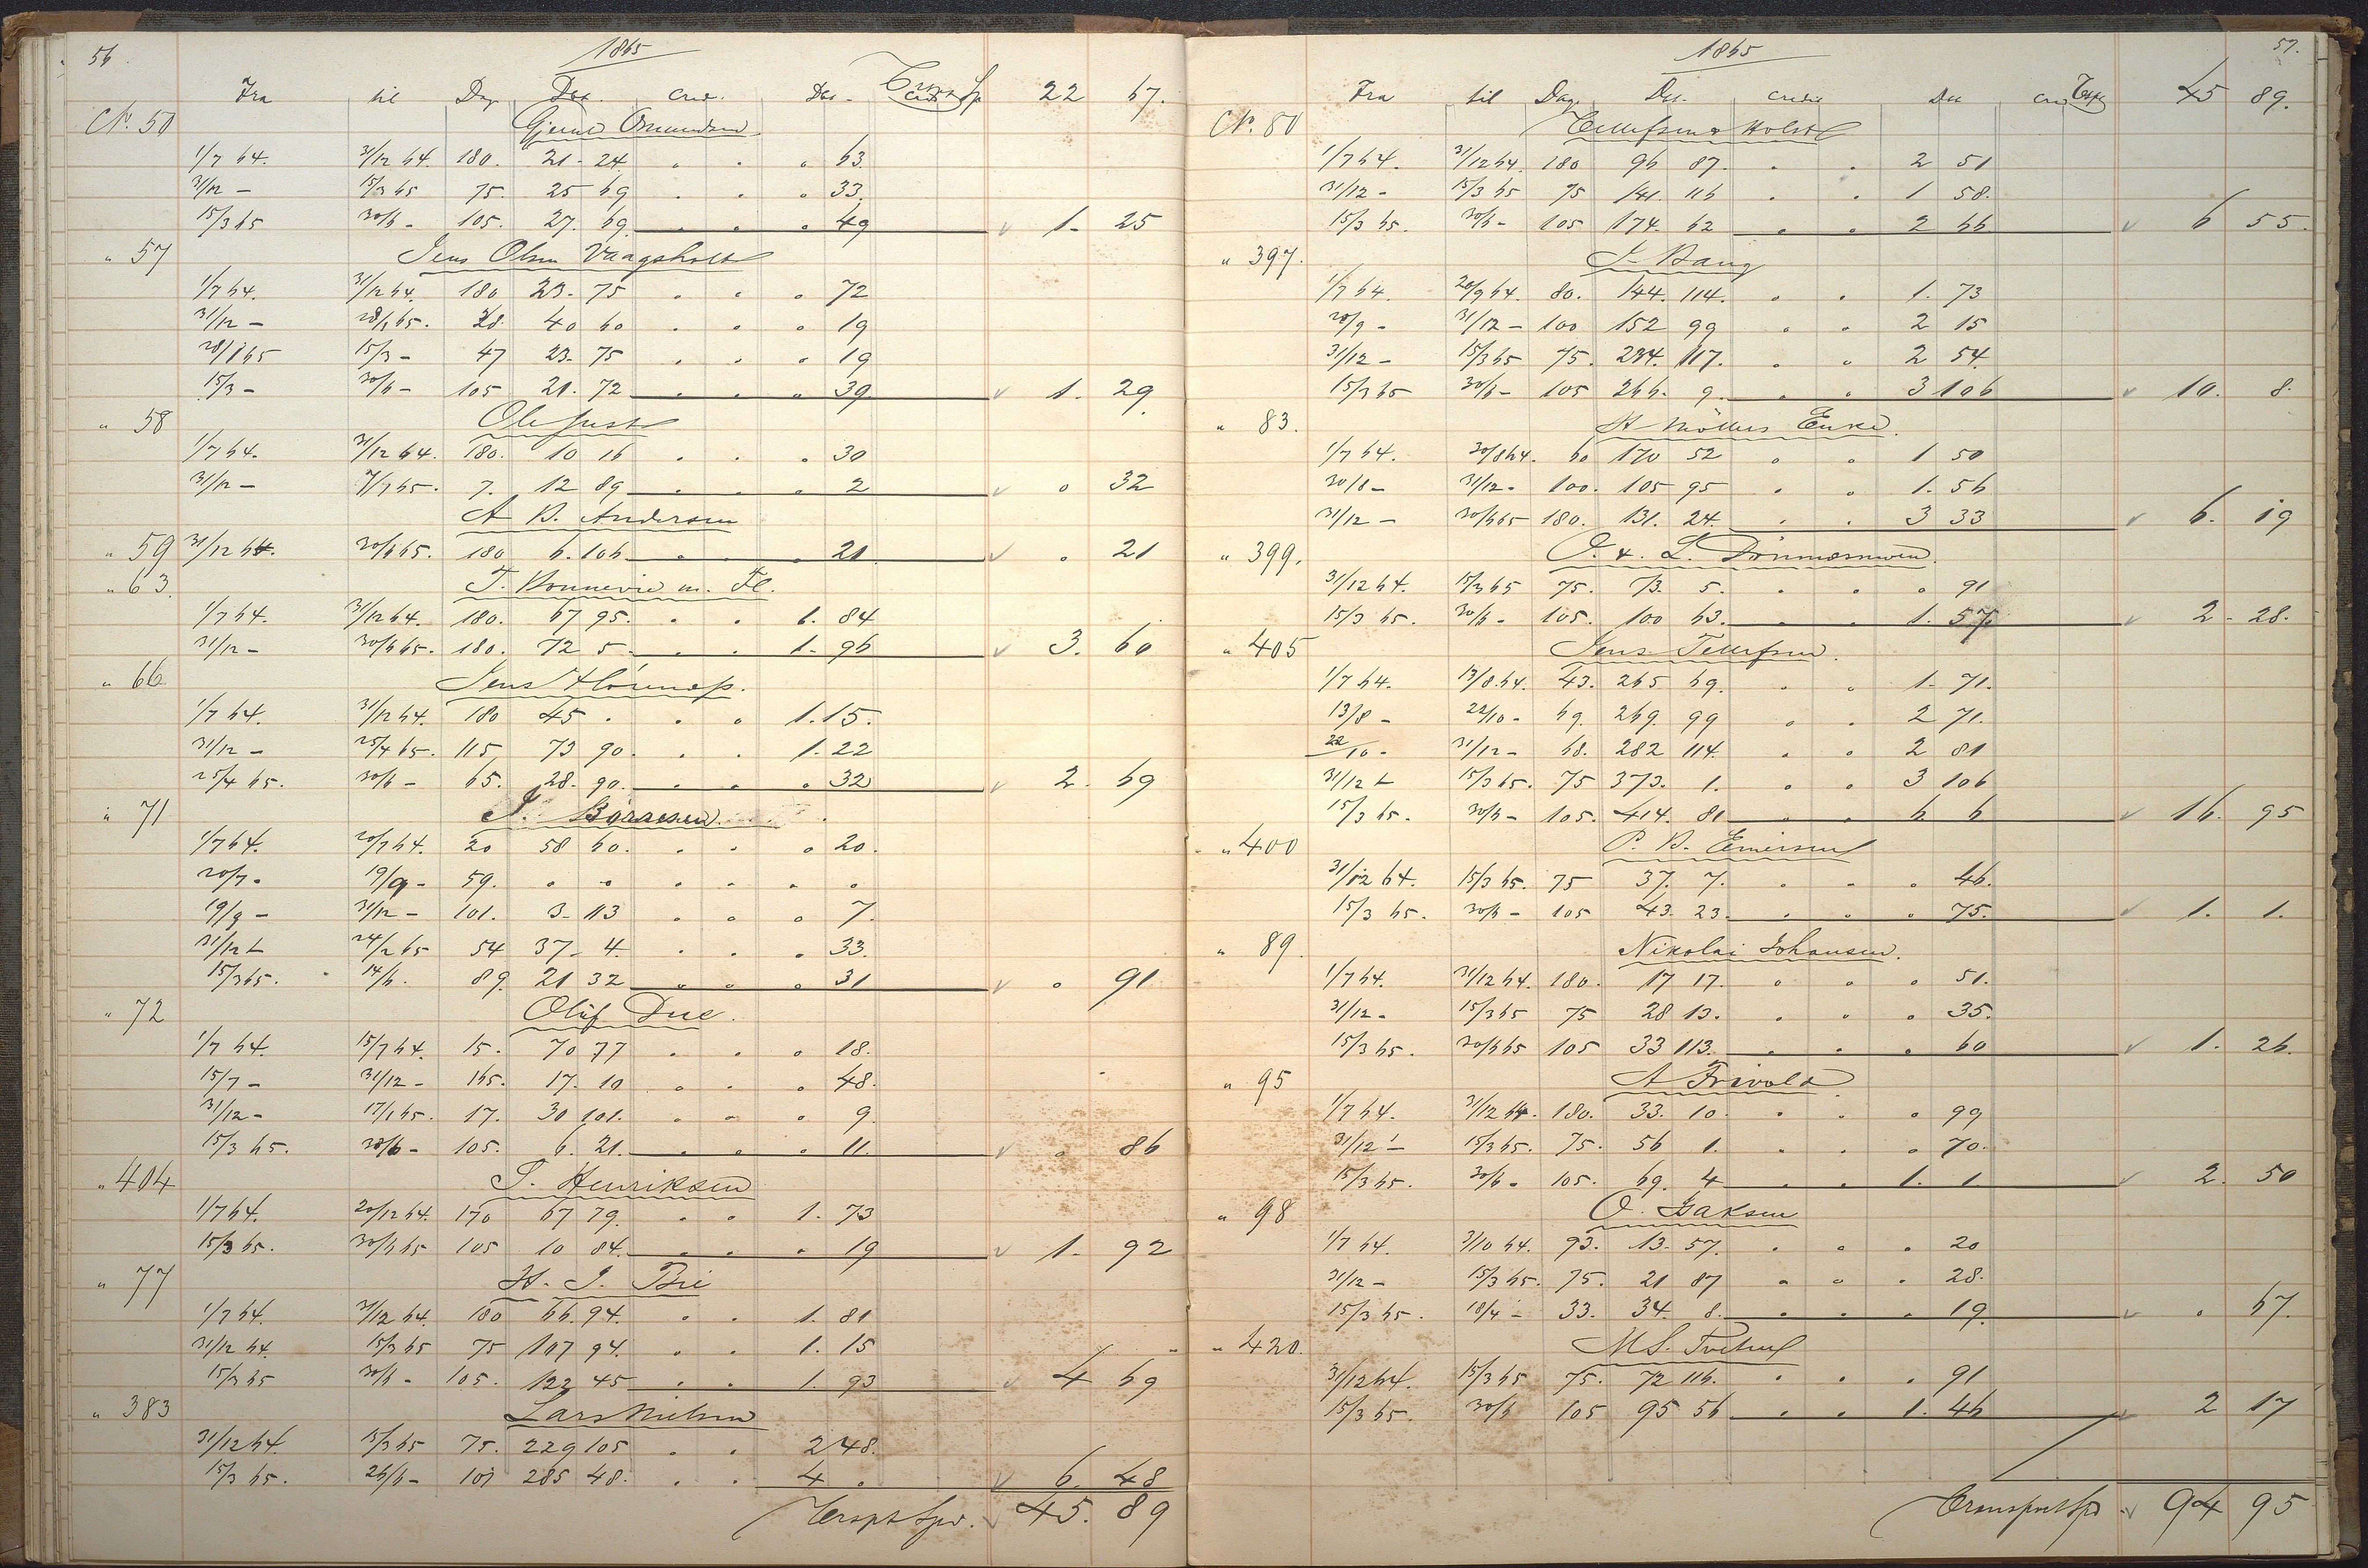 56.
1865
Fra til Dag Deb. cred. Deb. cred. Trspt Sp 22 67.
No. 50 Gjeruld Omundsen
1/7 64. 31/12 64. 180. 21 - 24. " " " 63
31/12 - 15/3 65 75. 25 69 " " " 33.
15/3 65 30/6 - 105. 27. 69 " " " 49 1. 25
" 57 Jens Olsen Vaagsholt
1/7 64. 31/12 64. 180 23. 75 " " " 72
31/12 - 28/1 65. 28. 40 60 " " " 19
28/1 65 15/3 - 47 23. 75 " " " 19
15/3 - 30/6 - 105 21. 72 " " " 39 1. 29
" 58 Ole Just
1/7 64. 31/12 64. 180. 10 16 " " " 30
31/12 - 7/1 65. 7. 12 89 " " " 2 " 32
A B. Andersen
" 59 31/12 64. 30/6 65. 180 6. 106 " " " 21 " 21
" 63. T. Bonnevie m. Fl.
1/7 64. 31/12 64. 180. 67 95. " " 1. 84
31/12 - 30/6 65. 180. 72 5. " " 1. 96 3. 60
" 66 Jens
1/7 64. 31/12 64. 180 45 " " " 1. 15.
31/12 - 25/4 65. 115 73 90. " " 1. 22
25/4 65. 30/6 - 65. 28. 90. " " " 32 2. 69
" 71 J. Børresen
1/7 64. 20/7 64. 20 58 60. " " " 20.
20/7. 19/9 - 59. " " " " " "
19/9 - 31/12 - 101. 3. 113 " " " 7.
31/12 - 24/2 65 54 37. 4. " " " 33.
15/3 65. 14/6. 89. 21 32 " " " 31 " 91
" 72 Oluf Due.
1/7 64. 15/7 64. 15. 70 77 " " " 18.
15/7 - 31/12 - 165. 17. 10 " " " 48.
31/12 - 17/1 65. 17. 30 101. " " " 9.
15/3 65. 30/6 - 105. 6. 21. " " " 11. " 86
" 404 S. Henriksen
1/7 64. 20/12 64. 170 67 79. " " 1. 73
15/3 65. 30/6 65 105 10 84. " " " 19 1. 92
" 77 H. J. Bie
1/7 64. 31/12 64. 180 66. 94. " " 1. 81
31/12 64. 15/3 65 75 107 94. " " 1. 15
15/3 65 30/6 - 105. 122 45 " " 1. 93 4 69
" 383 Lars Nielsen
31/12 64. 15/3 65 75. 229 105 " " 2 48.
15/3 65. 26/6 - 101 285 48. " " 4 " 6. 48
Trspt Spd. 45. 89
57.
1865
Fra til Dag Deb. credit Deb cred Trspt 45 89.
No. 80 Ellefsen & Holst
1/7 64. 31/12 64. 180 96 87. " " 2 51
31/12 - 15/3 65 75 141. 116 " " 1 58.
15/3 65. 30/6 - 105 174. 62 " " 2 66 6 55.
" 397. J. Bang
1/7 64 20/9 64. 80. 144. 114. " " 1. 73
20/9 - 31/12 - 100 152 99 " " 2 15
31/12 - 15/3 65 75. 234. 117. " " 2 54.
15/3 65 30/6 - 105 266. 9. " " 3 106 10. 8.
" 83. H Möllers Enke.
1/7 64. 30/8 64. 60 170 52 " " 1 50
30/8 - 31/12 - 100. 105 95 " " 1. 56
31/12 - 30/6 65 180. 131. 24. " " 3 33 6. 19
" 399. O. & L. Tönnesen
31/12 64. 15/3 65 75. 73. 5. " " " 91
15/3 65. 30/6 - 105. 100 63. " " 1. 57. 2 - 28.
" 405 Jens Tellefsen.
1/7 64. 13/8 64. 43. 265 69. " " 1. 71.
13/8 - 22/10 - 69. 269. 99 " " 2 71.
22/10 - 31/12 - 68. 282 114. " " 2 81
31/12 - 15/3 65. 75 373. 1. " " 3 106
15/3 65. 30/6 - 105. 414. 81 " " 6 6 16. 95
" 400 P. B. Emersen
31/12 64. 15/3 65. 75 37. 7. " " " 46.
15/3 65. 30/6 - 105 43. 23. " " " 75. 1. 1.
" 89. Nikolai Johansen.
1/7 64. 31/12 64. 180. 17 17. " " " 51.
31/12 - 15/3 65 75 28 13. " " " 35.
15/3 65. 30/6 65 105 33 113. " " " 60 1. 26.
" 95 A Frivold
1/7 64. 31/12 64. 180. 33. 10. " " " 99
31/12 - 15/3 65. 75. 56 1. " " " 70.
15/3 65. 30/6 - 105. 69. 4 " " 1. 1 2. 50
" 98 O. Isaksen
1/7 64. 3/10 64. 93. 13. 57. " " " 20
31/12 - 15/3 65. 75. 21 87 " " " 28.
15/3 65. 18/4 - 33. 34. 8. " " " 19. " 67.
" 420. M S. Tveten
31/12 64. 15/3 65 75. 72 116. " " " 91
15/3 65. 30/6 105 95 56 " " 1. 46 2 17
Transport Spd 94 95